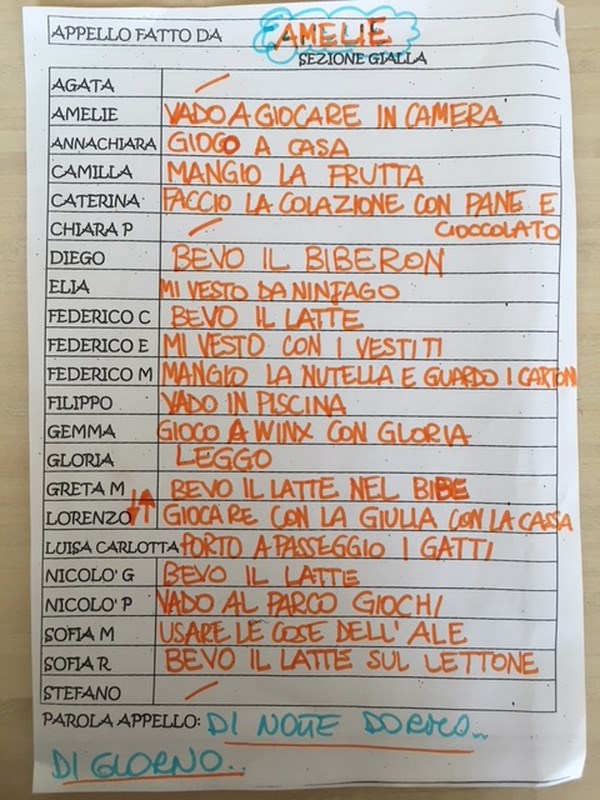 APPELLO FATTO DA AMELIE
SEZIONE GIALLA
AGATA /
AMELIE VADO A GIOCARE IN CAMERA
ANNACHIARA GIOCO A CASA
CAMILLA MANGIO LA FRUTTA
CATERINA FACCIO LA COLAZIONE CON PANE E
CHIARA P / CIOCCOLATO
DIEGO BEVO IL BIBERON
ELIA MI VESTO DA NINJAGO
FEDERICO C BEVO IL LATTE
FEDERICO E MI VESTO CON I VESTITI
FEDERICO M MANGIO LA NUTELLA E GUARDO I CARTONI
FILIPPO VADO IN PISCINA
GEMMA GIOCO A WINX CON GLORIA
GLORIA LEGGO
GRETA M BEVO IL LATTE NEL BIBE
LORENZO GIOCARE CON LA GIULIA CON LA CASSA
LUISA CARLOTTA PORTO A PASSEGGIO I GATTI
NICOLO' G BEVO IL LATTE
NICOLO' P VADO AL PARCO GIOCHI
SOFIA M USARE LE COSE DELL' ALE
SOFIA R BEVO IL LATTE SUL LETTONE
STEFANO /
PAROLA APPELLO: DI NOTTE DORMO..
DI GIORNO..